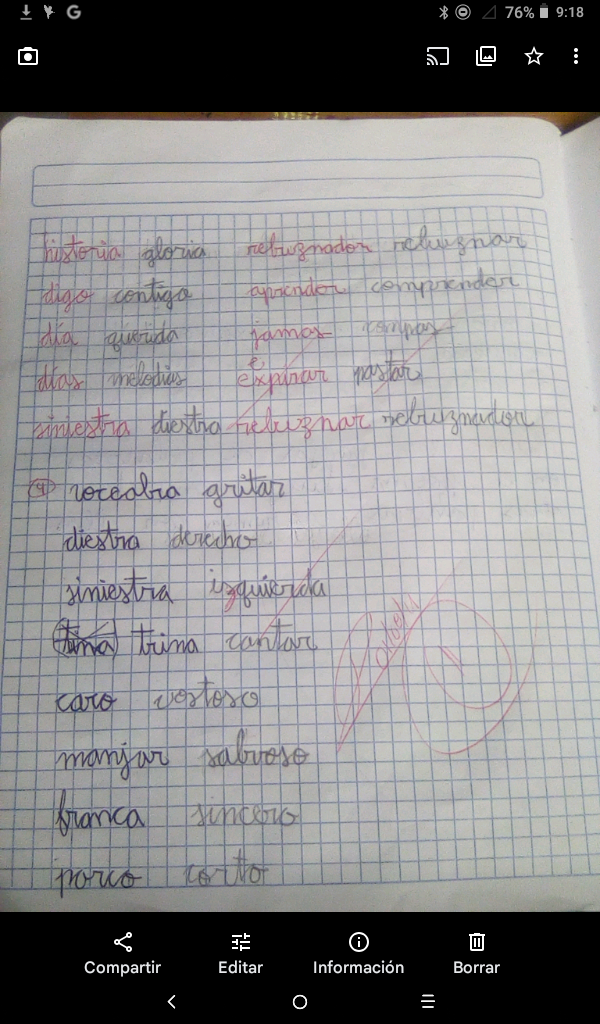 76% 9:18
historia gloria rebuznador rebuznar
digo contigo aprender comprender
día querida jamas compas
días melodias expirar pastar
siniestra diestra rebuznar rebuznador
4 voceabra gritar
diestra derecho
siniestra izquierda
trina cantar
caro costoso
manjar sabroso
franca sincero
porco corto
Compartir Editar Información Borrar